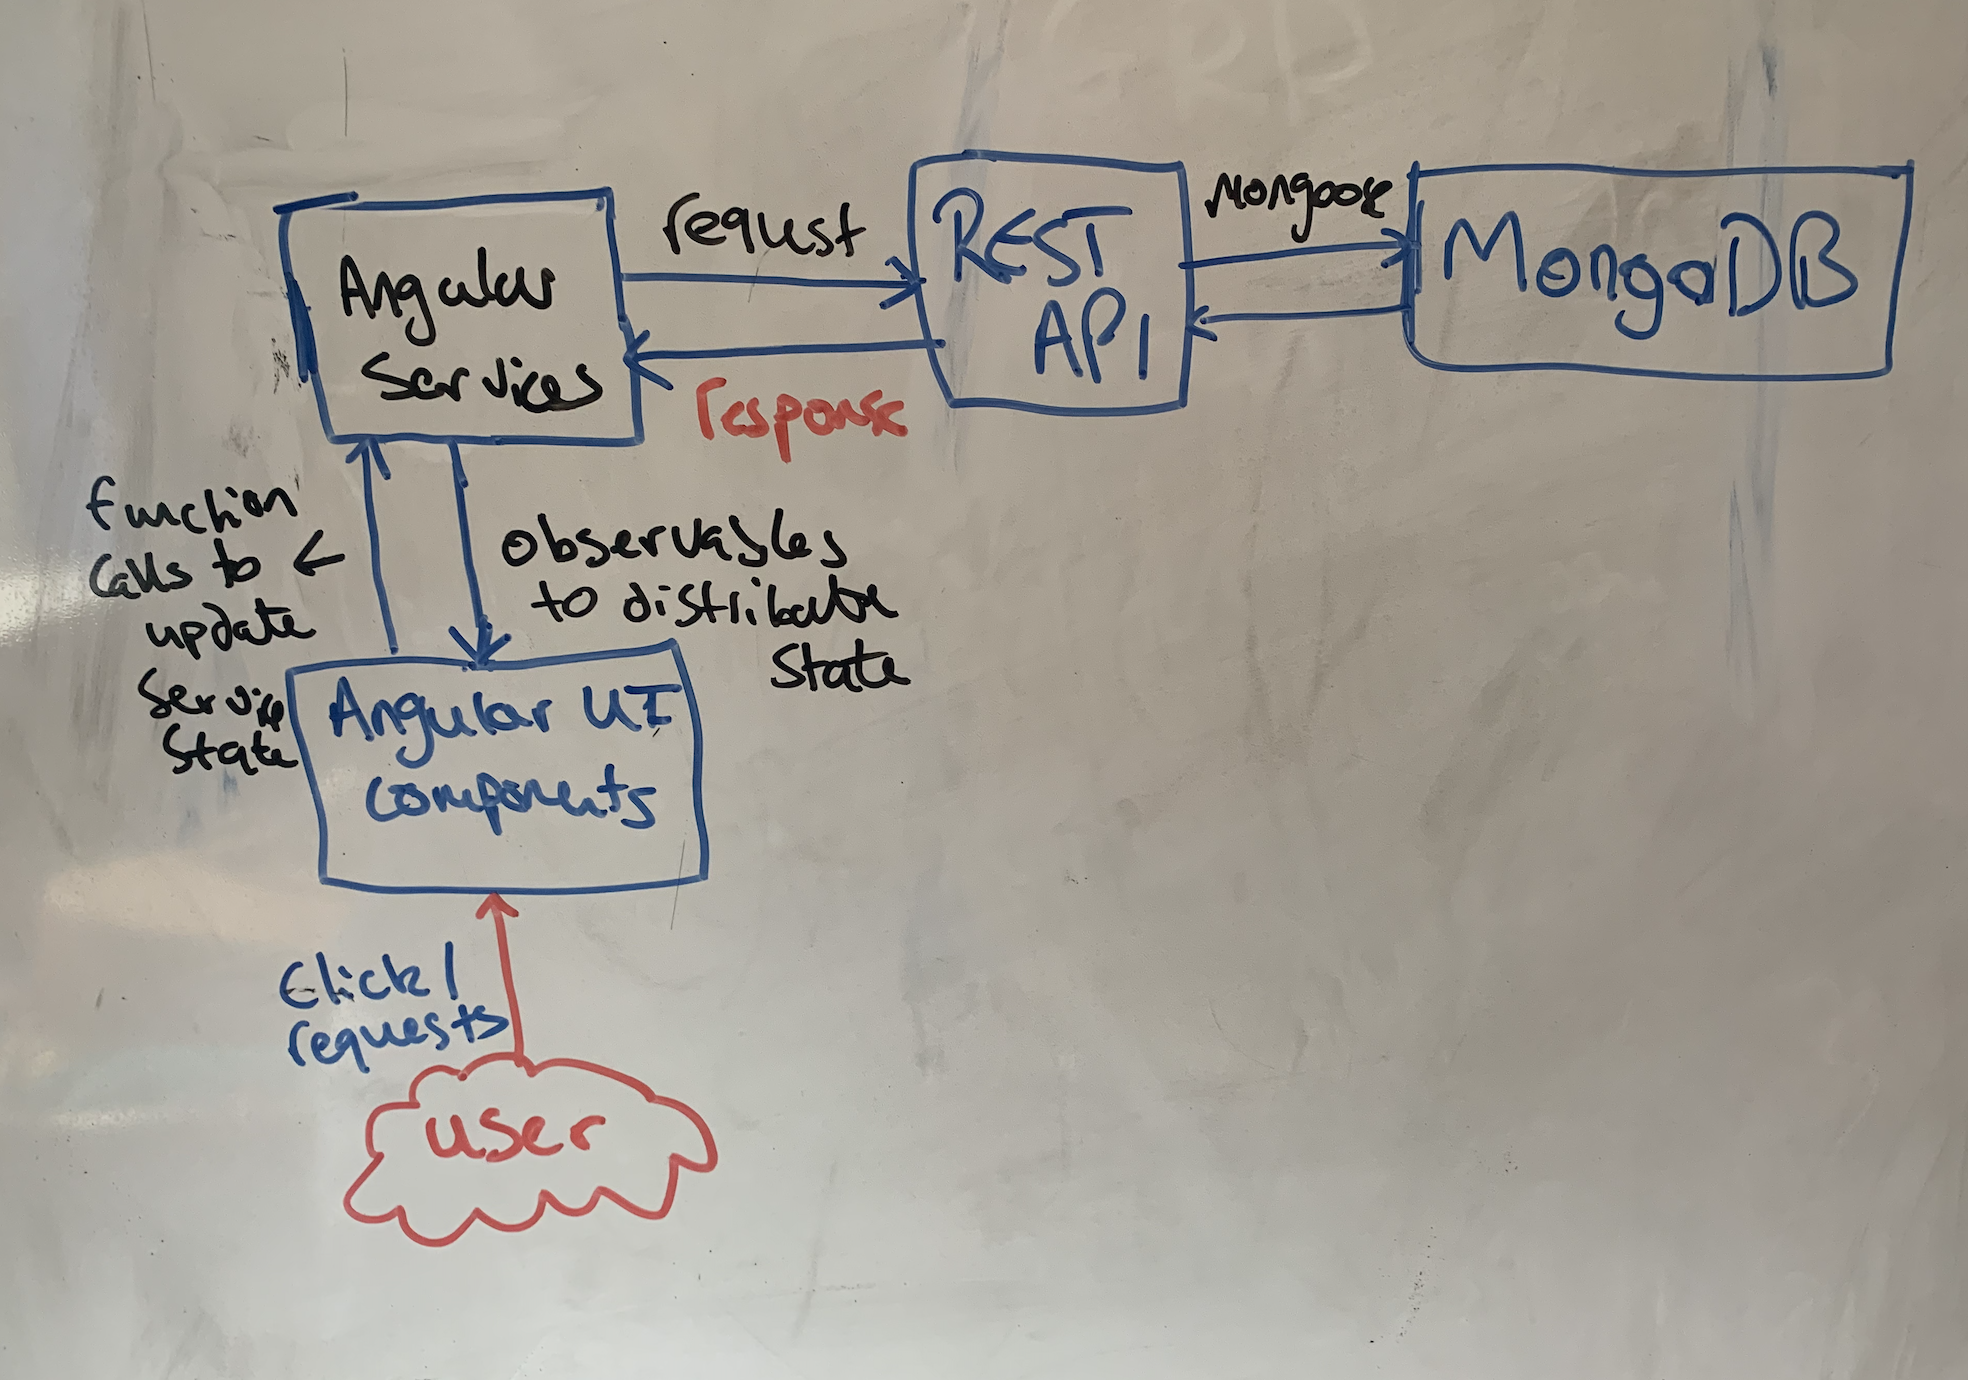 Angular
Services
request
response
REST
API
Mongoose
MongoDB
function
calls to ←
update
service
state
observables
to distribute
state
Angular UI
components
Click/
requests
user